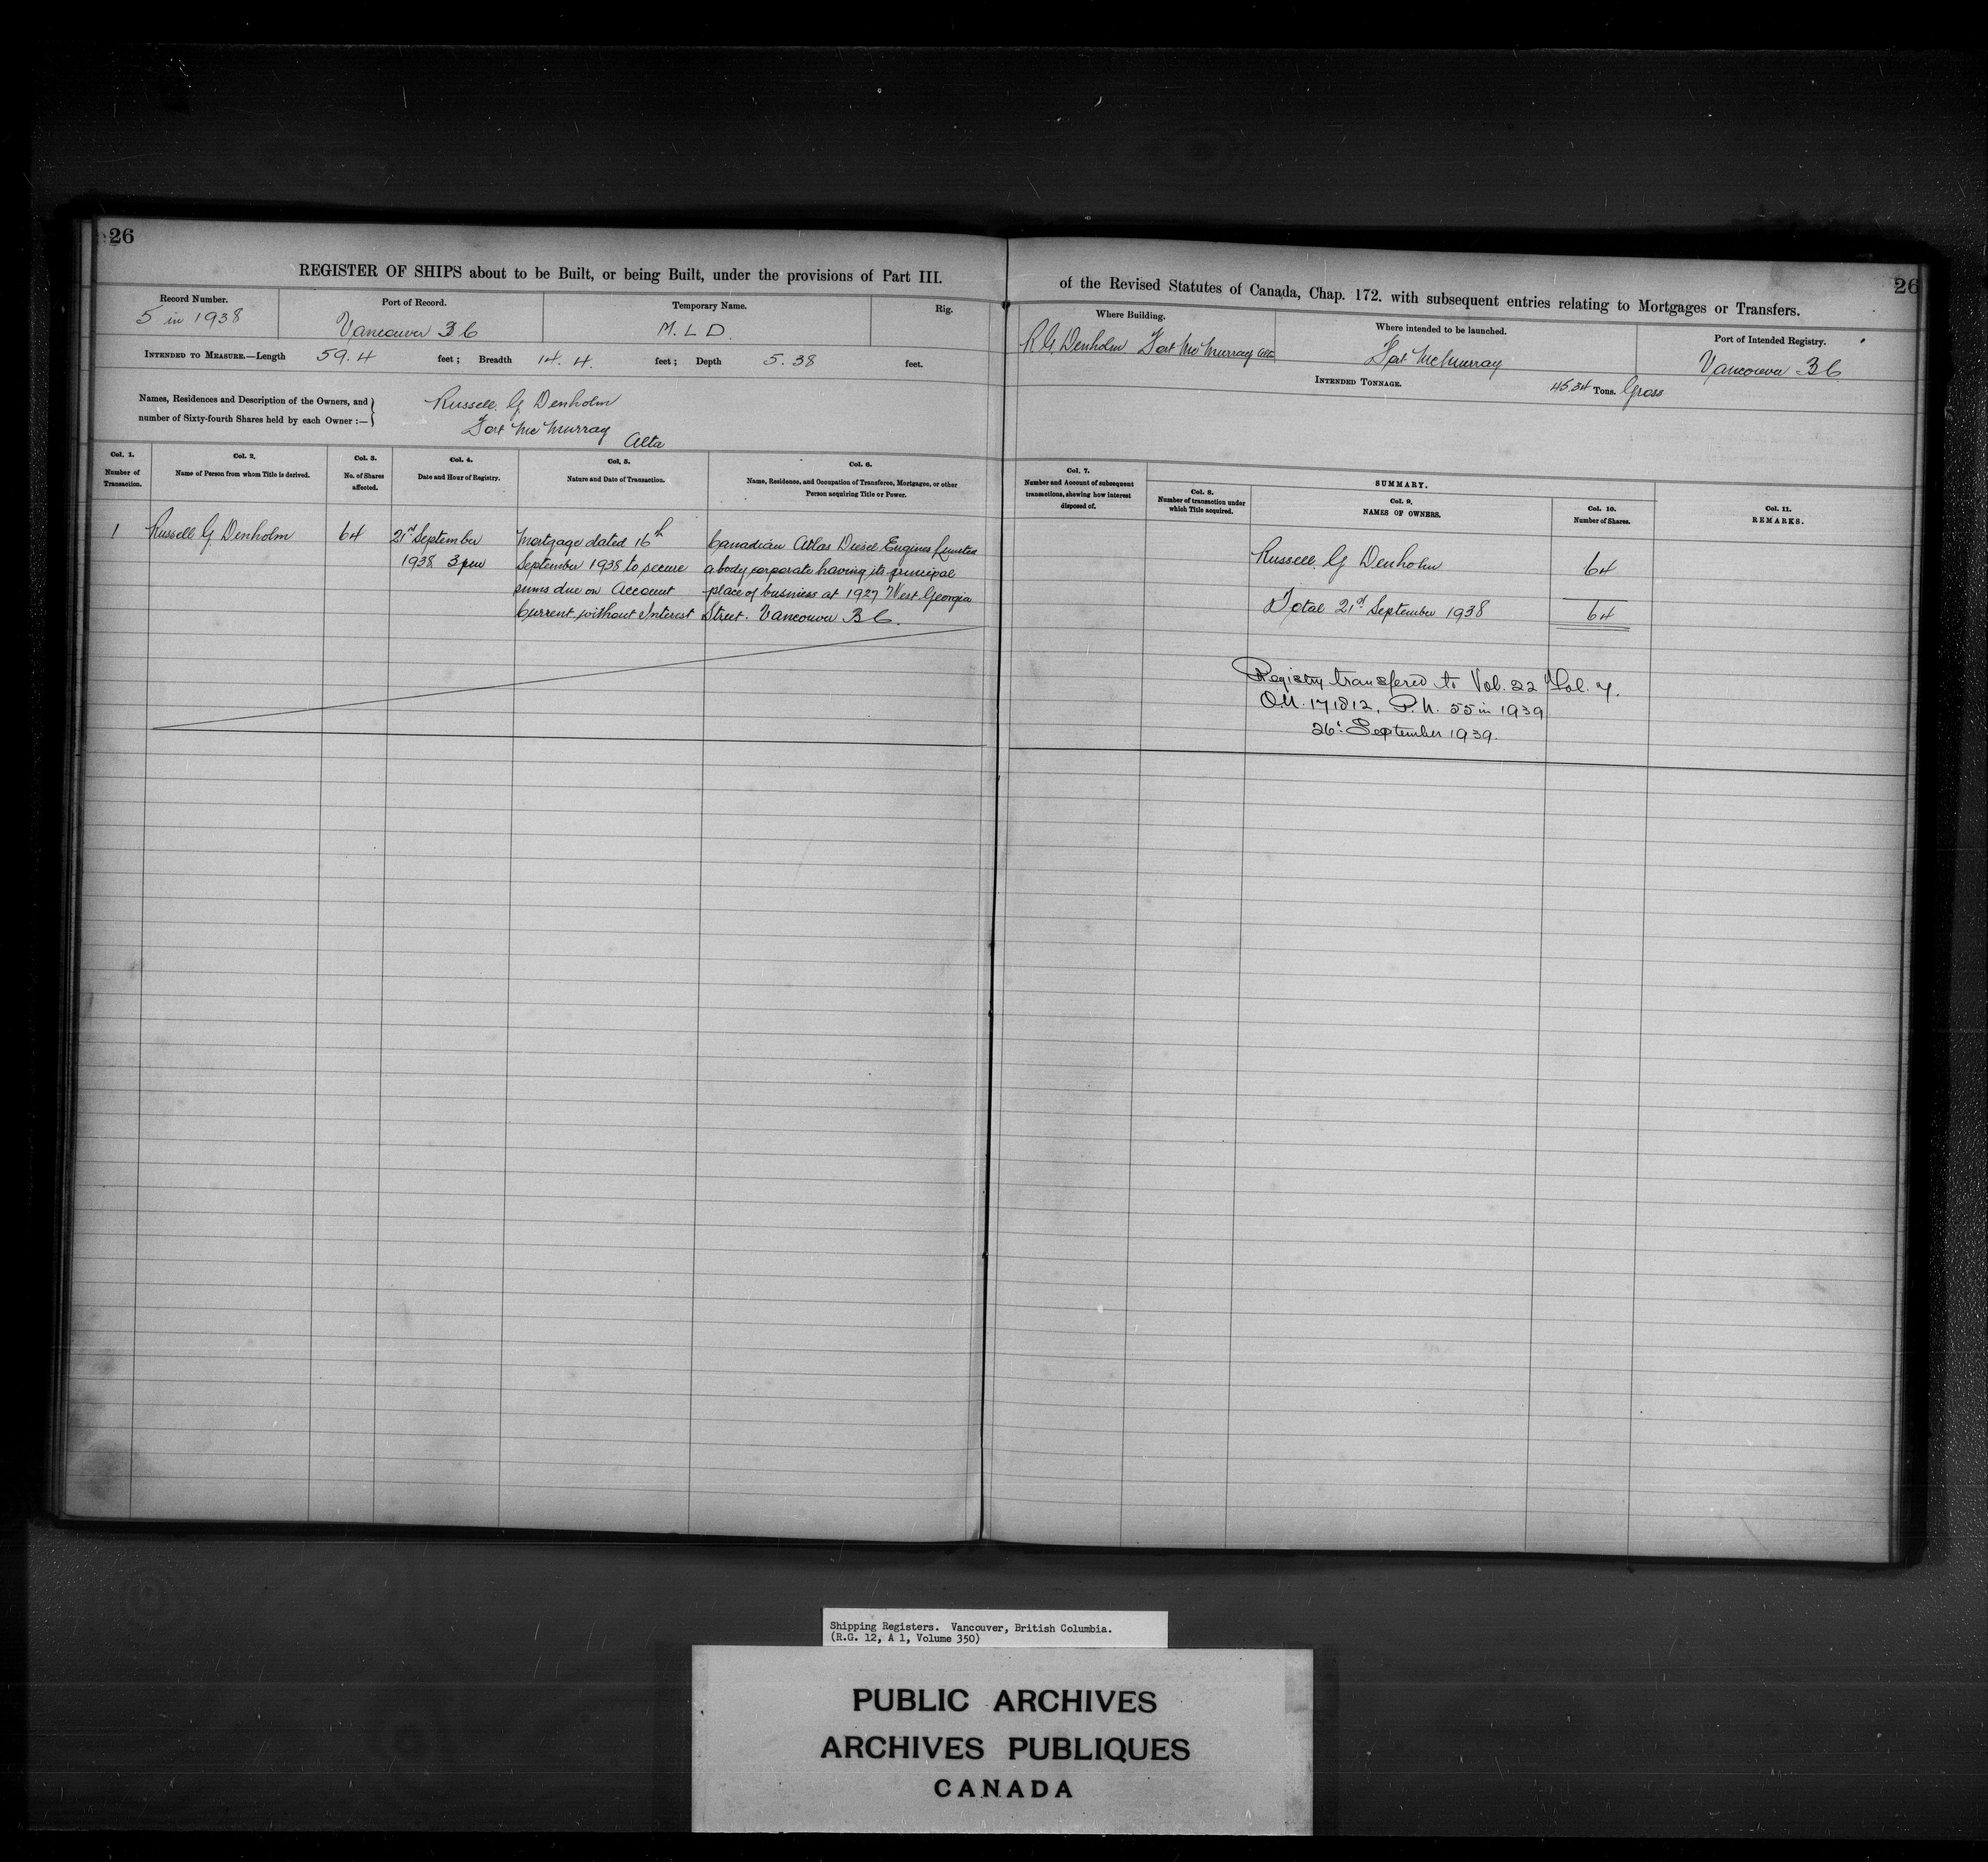 26
REGISTER OF SHIPS about to be Built, or being Built, under the provisions of Part III.
Record Number.
5 in 1938
Port of Record.
Vancouver BC
Temporary Name.
M. L D.
Rig.
INTENDED TO MEASURE.—Length 59.4 feet; Breadth 14.4. feet; Depth 5.38 feet.
Names, Residences and Description of the Owners, and
number of Sixty-fourth Shares held by each Owner :—
Russell. G Denholm
Fort McMurray Alta
Col. 1.
Number of
Transaction.
Col. 2.
Name of Person from whom Title is derived.
Col. 3.
No. of Shares
affected.
Col. 4.
Date and Hour of Registry.
Col. 5.
Nature and Date of Transaction.
Col. 6.
Name, Residence, and Occupation of Transferee, Mortgagee, or other
Person acquiring Title or Power.
1
Russell G Denholm
64
21st September
1938 3 pm
Mortgage dated 16th
September 1938 to secure
sums due on Account
Current without Interest
Canadian Atlas Diesel Engines Limited
a body corporate having its principal
place of business at 1927 West Georgia
Street. Vancouver BC.
26
of the Revised Statutes of Canada, Chap. 172. with subsequent entries relating to Mortgages or Transfers.
Where Building.
R G Denholm Fort McMurray Alta
Where intended to be launched.
Fort McMurray
Port of Intended Registry.
Vancouver BC
INTENDED TONNAGE. 45.34 Tons. Gross
Col. 7.
Number and Account of subsequent
transactions, shewing how interest
disposed of.
SUMMARY.
Col. 8.
Number of transaction under
which Title acquired.
Col. 9.
NAMES OF OWNERS.
Col. 10.
Number of Shares.
Col. 11.
REMARKS.
Russell. G Denholm 64
Total 21st September 1938 64
Registry transfered to Vol. 22 Fol. 7.
O.N. 171812. P.N. 55 in 1939
26th September 1939.
Shipping Registers. Vancouver, British Columbia.
(R.G. 12, A 1, Volume 350)
PUBLIC ARCHIVES
ARCHIVES PUBLIQUES
CANADA